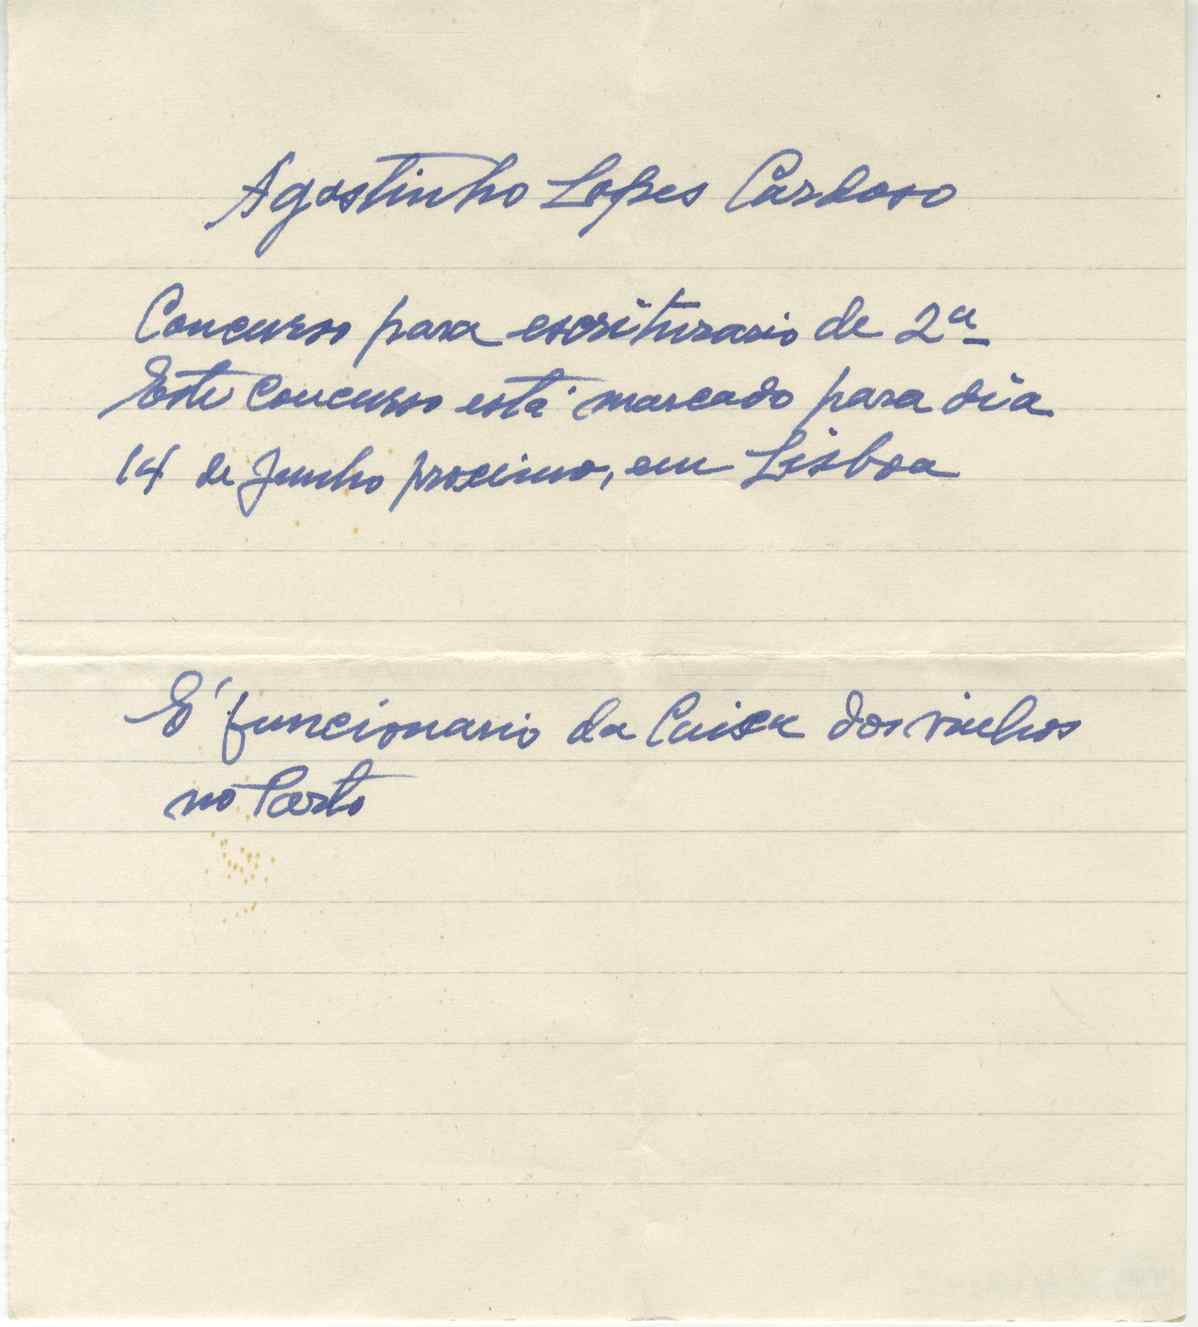 Agostinho Lopes Cardoso
Concurso para escriturario de 2ª
Este concurso está marcado para dia
14 de Junho proximo, em Lisboa
E' funcionario da Caixa dos vinhos
no Porto